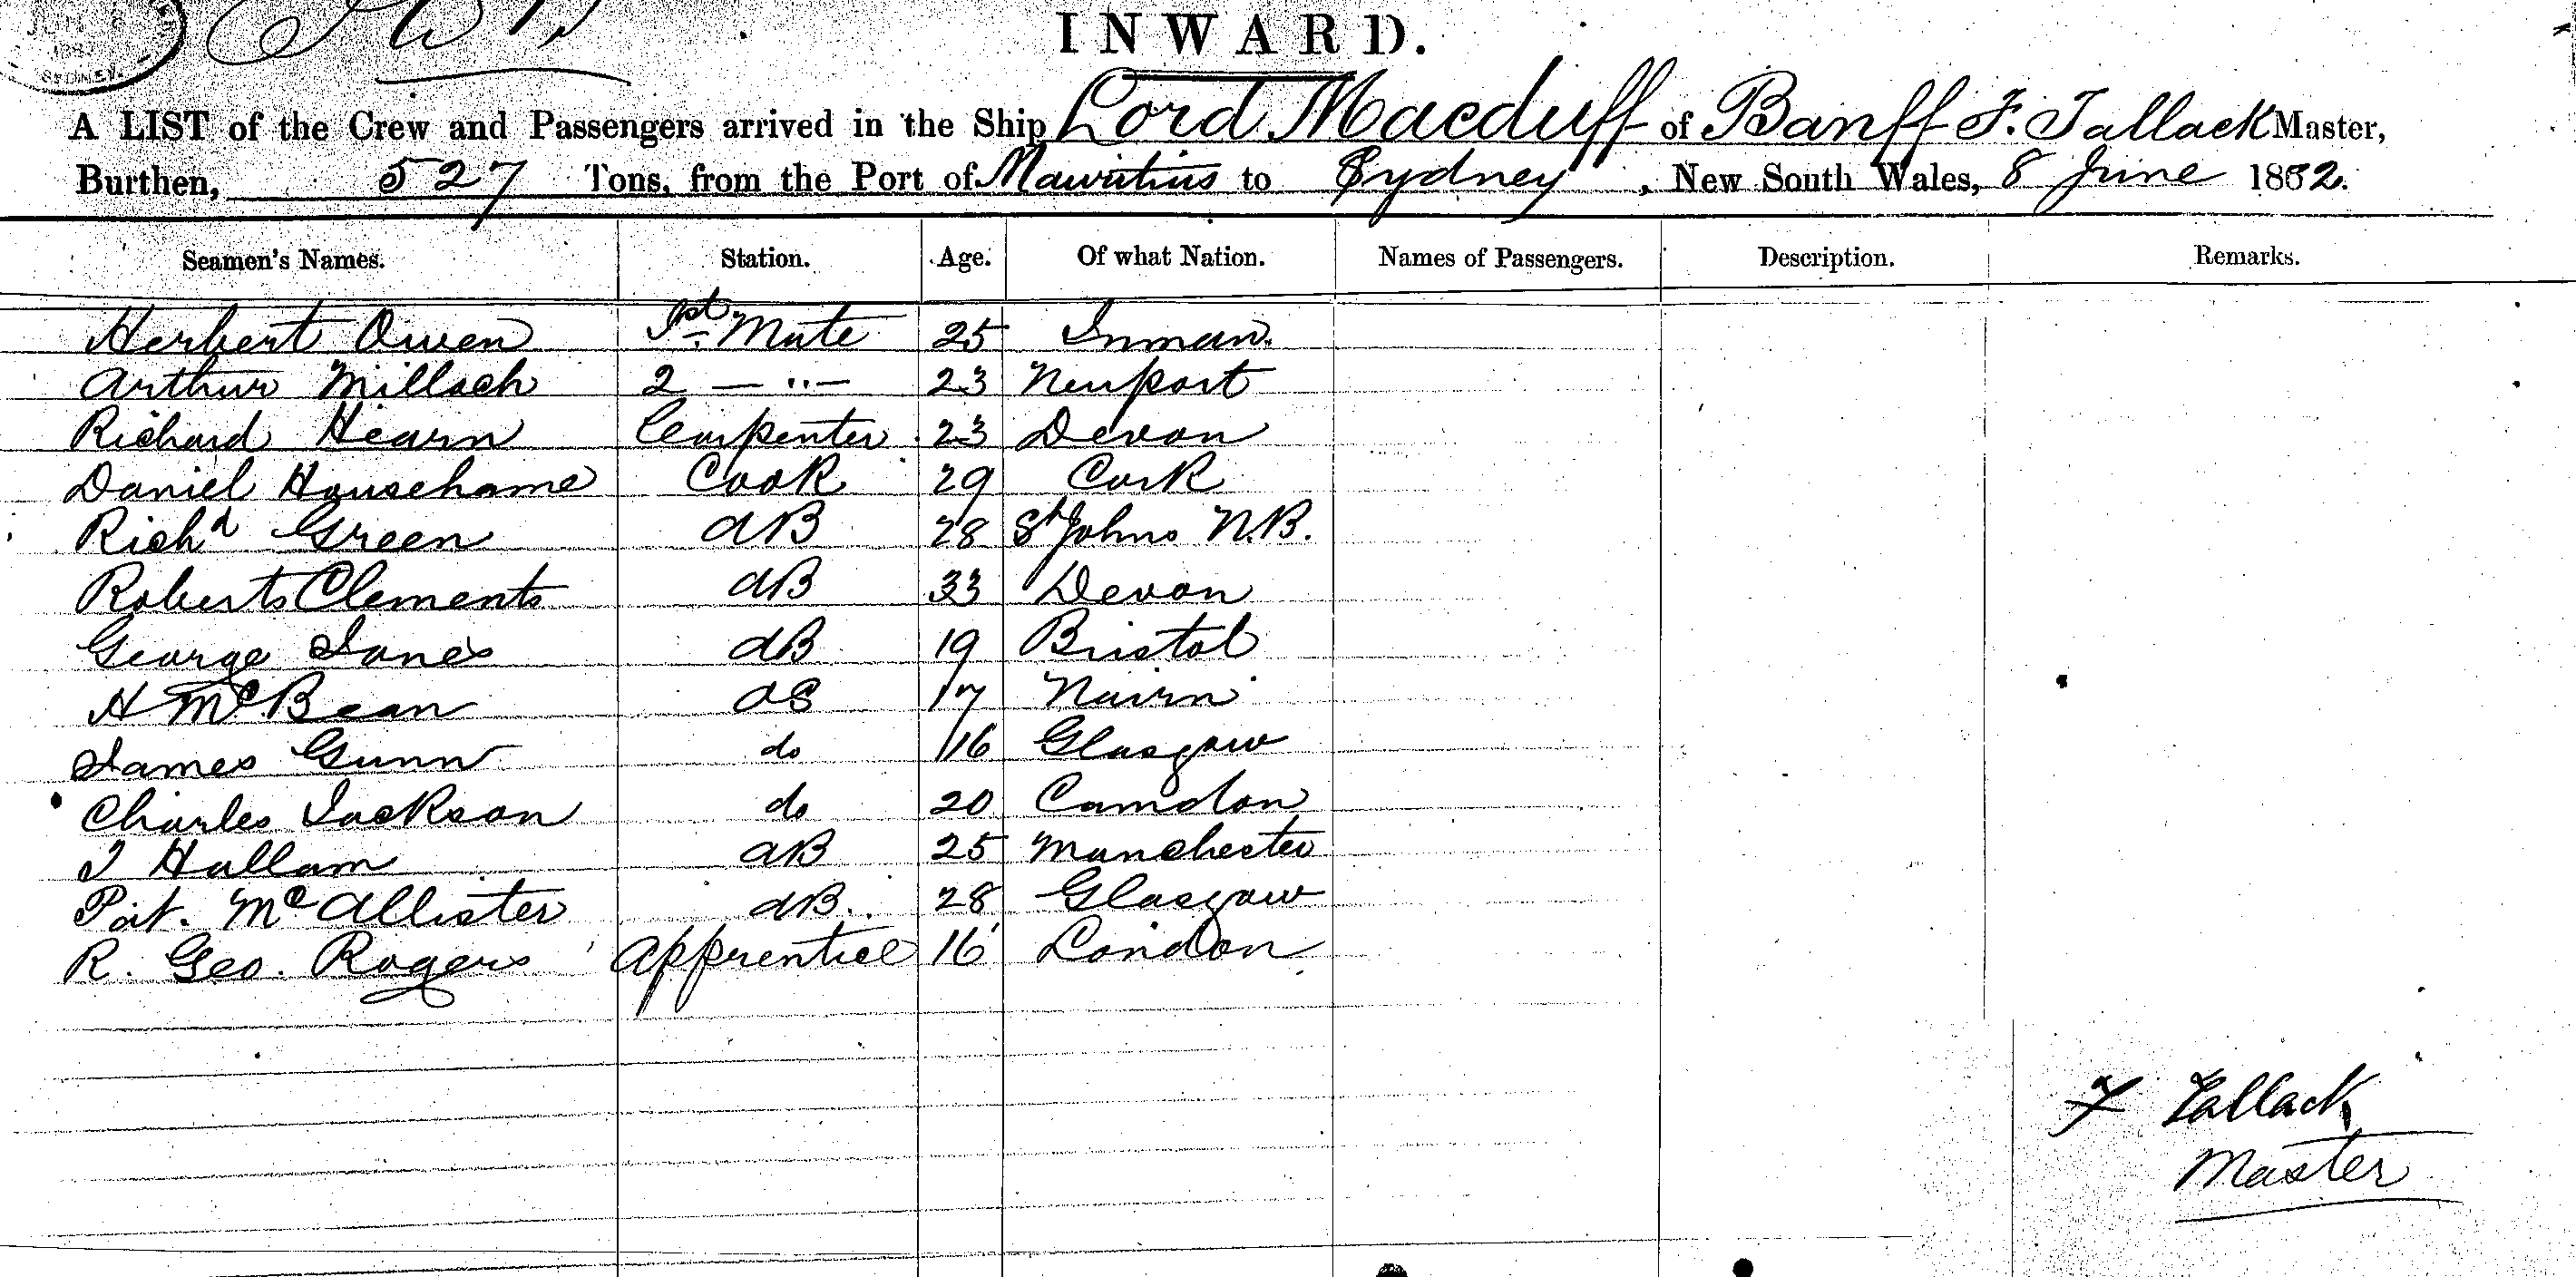 SYDNEY.
INWARD.
A LIST of the Crew and Passengers arrived in the Ship Lord Macduff of Banff F. Tallack Master,
Burthen, 527 Tons, from the Port of Mauritius to Sydney, New South Wales, 8 June 1882.
Seamen's Names. Station. Age. Of what Nation. Names of Passengers. Description. Remarks.
Herbert Owen 1st Mate 25 Inman
Arthur Millach 2 — " — 23 Newport
Richard Hearn Carpenter 23 Devon
Daniel Househame Cook 29 Cork
Richd Green AB 28 St Johns N.B.
Roberts Clements AB 33 Devon
George Jones AB 19 Bristol
H McBean OS 17 Nairn
James Gunn do 16 Glasgow
Charles Jackson do 20 Camdon
J Hallam AB 25 Manchester
Pat. McAllister AB. 28 Glasgow
R. Geo. Rogers Apprentice 16 London
F Tallack
Master